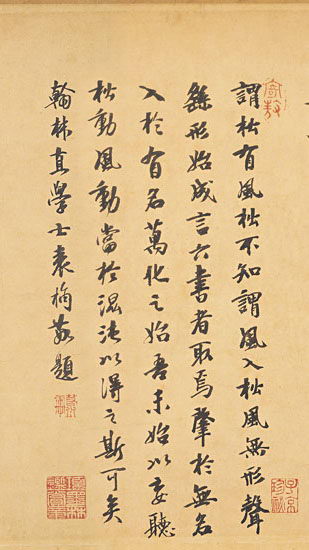 謂松有風松不知謂風入松風無形聲
繇形始成言六書者取焉肇於無名
入於有名萬化之始吾未始以妄聽
松動風動當於混沌以得之斯可矣
翰林直學士袁桷敬題
子京
珍秘